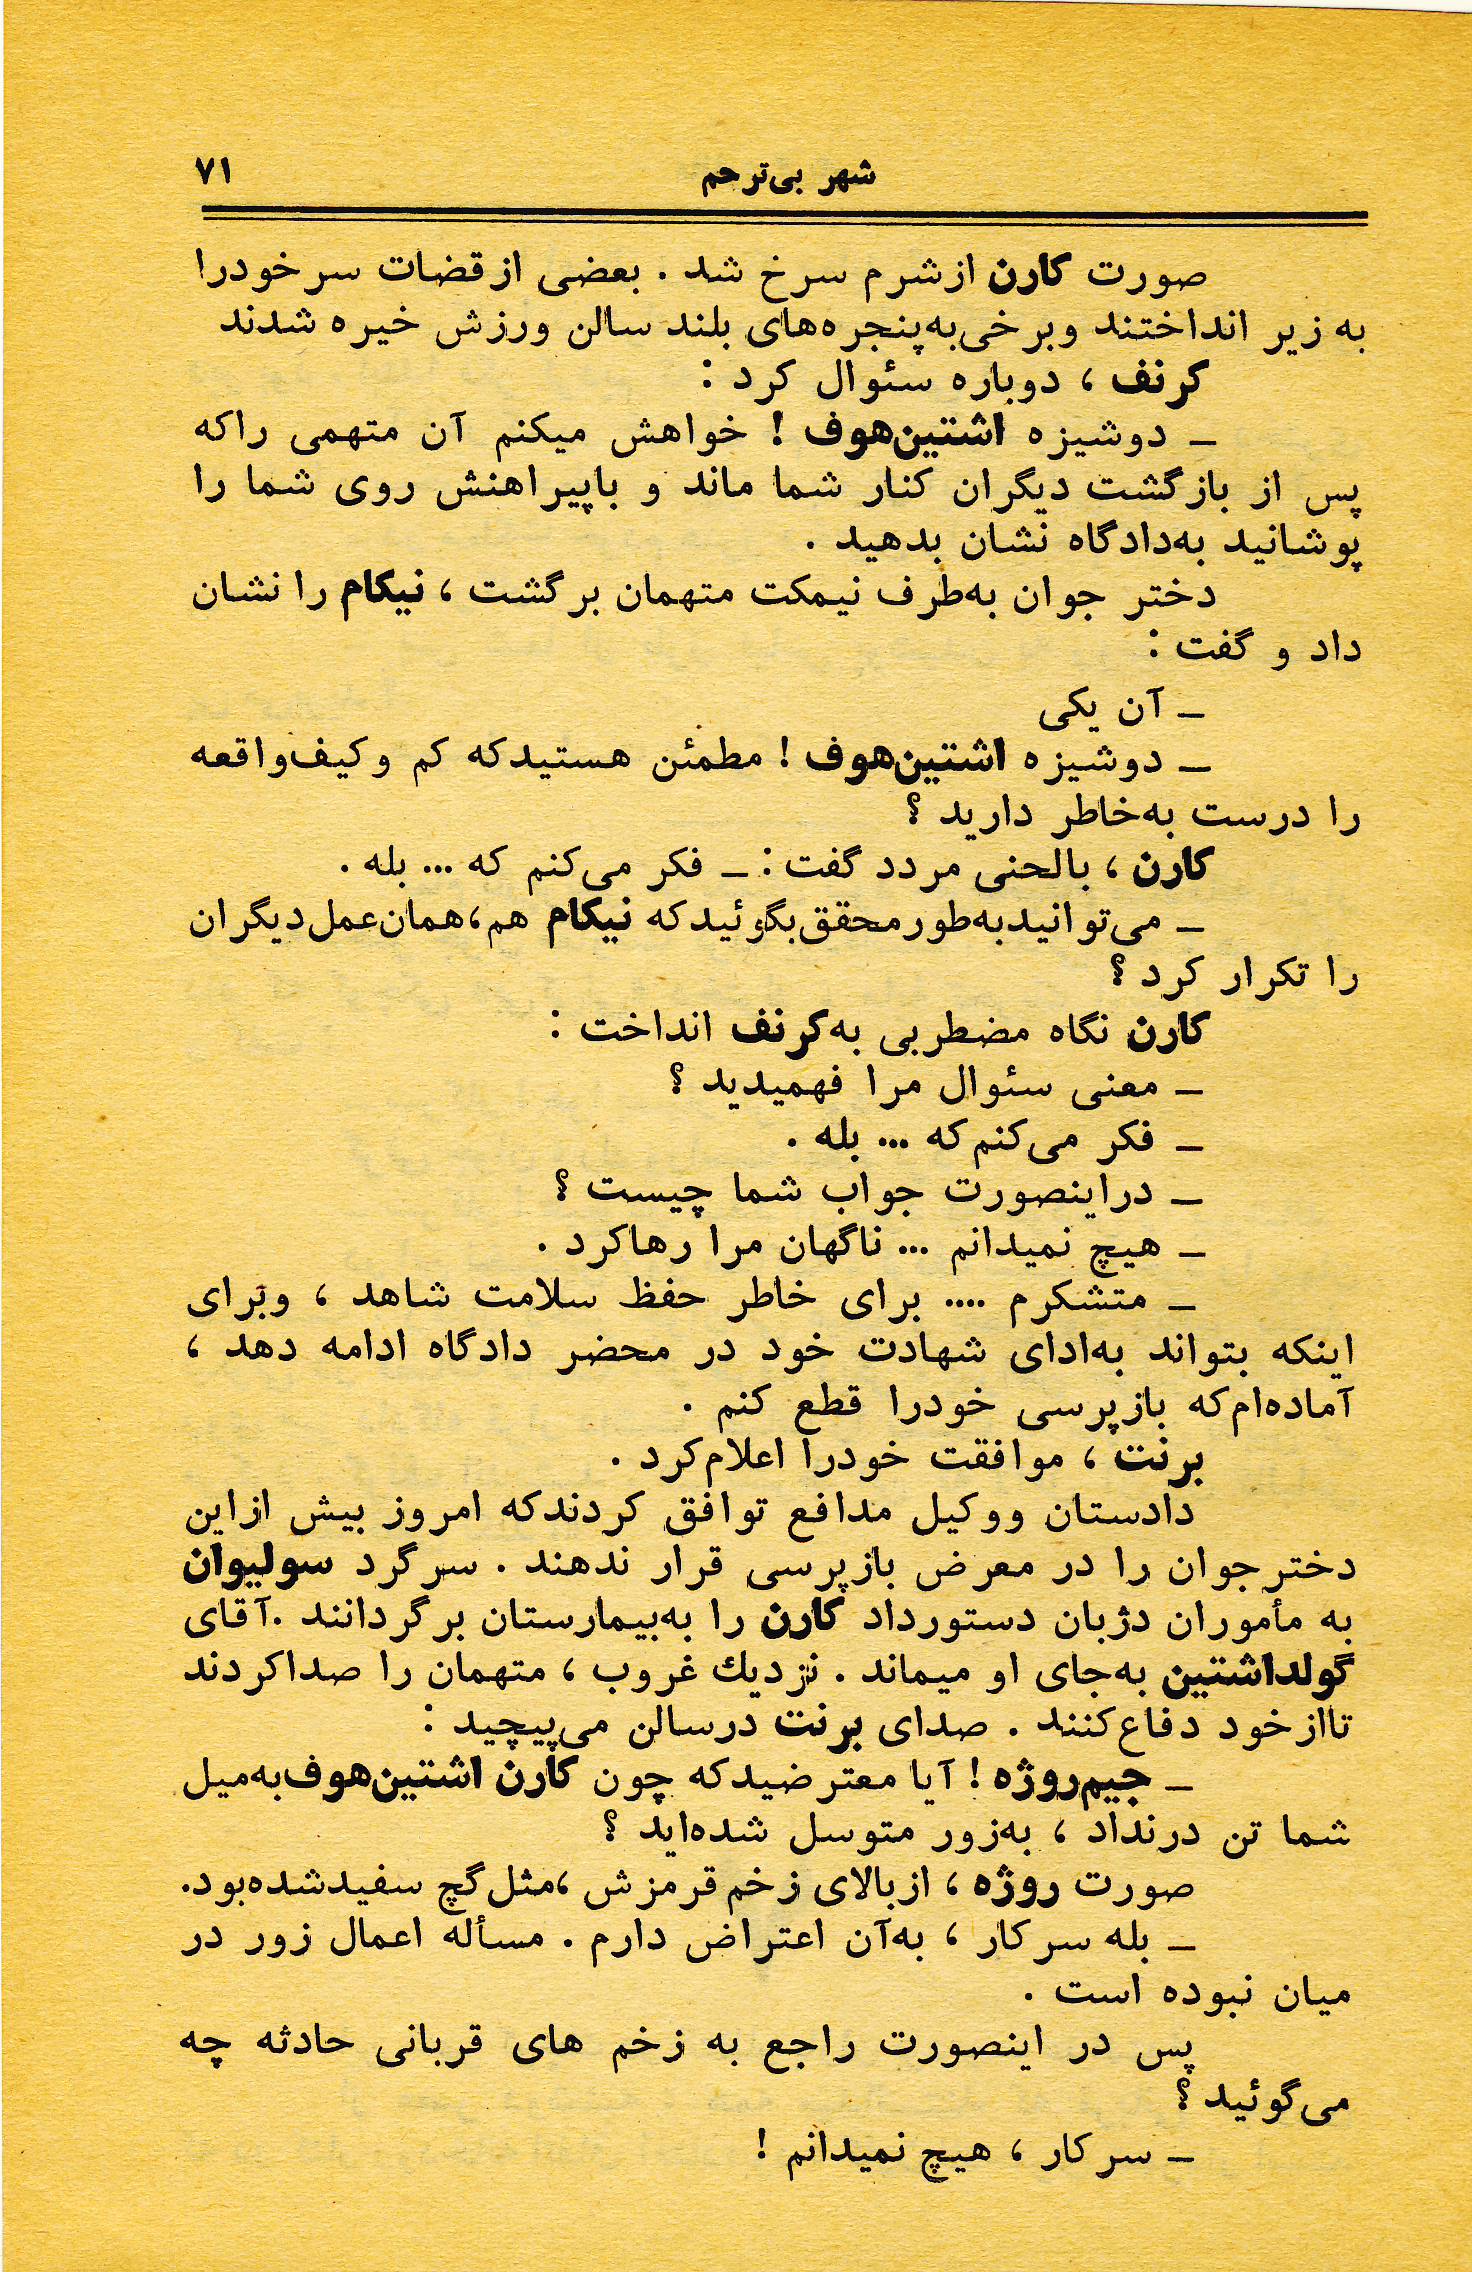 شهر بی‌ترحم ۷۱
صورت کارن ازشرم سرخ شد . بعضی ازقضات سرخودرا
به زیر انداختند وبرخی‌به‌پنجره‌های بلند سالن ورزش خیره شدند
کرنف ، دوباره سئوال کرد :
ـ دوشیزه اشتین‌هوف ! خواهش میکنم آن متهمی راکه
پس از بازگشت دیگران کنار شما ماند و باپیراهنش روی شما را
پوشانید به‌دادگاه نشان بدهید .
دختر جوان به‌طرف نیمکت متهمان برگشت ، نیکام را نشان
داد و گفت :
ـ آن یکی
ـ دوشیزه اشتین‌هوف ! مطمئن هستیدکه کم وکیف‌واقعه
را درست به‌خاطر دارید ؟
کارن ، بالحنی مردد گفت : ـ فکر می‌کنم که ... بله .
ـ می‌توانیدبه‌طورمحقق‌بگوئیدکه نیکام هم،همان‌عمل‌دیگران
را تکرار کرد ؟
کارن نگاه مضطربی به‌کرنف انداخت :
ـ معنی سئوال مرا فهمیدید ؟
ـ فکر می‌کنم‌که ... بله .
ـ دراینصورت جواب شما چیست ؟
ـ هیچ نمیدانم ... ناگهان مرا رهاکرد .
ـ متشکرم .... برای خاطر حفظ سلامت شاهد ، وبرای
اینکه بتواند به‌ادای شهادت خود در محضر دادگاه ادامه دهد ،
آماده‌ام‌که بازپرسی خودرا قطع کنم .
برنت ، موافقت خودرا اعلام‌کرد .
دادستان ووکیل مدافع توافق کردندکه امروز بیش ازاین
دخترجوان را در معرض بازپرسی قرار ندهند . سرگرد سولیوان
به مأموران دژبان دستورداد کارن را به‌بیمارستان برگردانند .آقای
گولداشتین به‌جای او میماند . نزدیك غروب ، متهمان را صداکردند
تاازخود دفاع‌کنند . صدای برنت درسالن می‌پیچید :
ـ جیم‌روژه ! آیا معترضیدکه چون کارن اشتین‌هوف‌به‌میل
شما تن درنداد ، به‌زور متوسل شده‌اید ؟
صورت روژه ، ازبالای زخم‌قرمزش ،مثل‌گچ سفیدشده‌بود.
ـ بله سرکار ، به‌آن اعتراض دارم . مسأله اعمال زور در
میان نبوده است .
پس در اینصورت راجع به زخم های قربانی حادثه چه
می‌گوئید ؟
ـ سرکار ، هیچ نمیدانم !